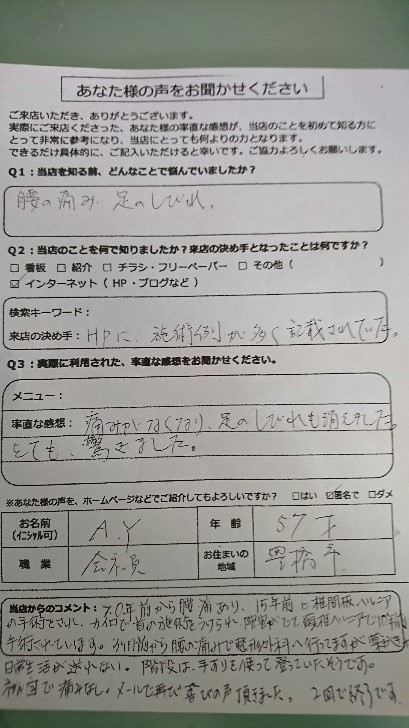 あなた様の声をお聞かせください
ご来店いただき、ありがとうございます。
実際にご来店くださった、あなた様の率直な感想が、当店のことを初めて知る方に
とって非常に参考になり、当店にとっても何よりの力となります。
できるだけ具体的に、ご記入いただけると幸いです。ご協力よろしくお願いします。
Q1：当店を知る前、どんなことで悩んでいましたか？
腰の痛み、足のしびれ。
Q2：当店のことを何で知りましたか？来店の決め手となったことは何ですか？
□ 看板 □ 紹介 □ チラシ・フリーペーパー □ その他（ ）
☑ インターネット（ HP・ブログなど ）
検索キーワード：
来店の決め手： HPに、施術例が多く記載されていた。
Q3：実際に利用された、率直な感想をお聞かせください。
メニュー：
率直な感想： 痛みがなくなり、足のしびれも消えました。
とても、驚きました。
※あなた様の声を、ホームページなどでご紹介してもよろしいですか？ □はい ☑匿名で □ダメ
お名前 (イニシャル可) A.Y 年齢 57才
職業 会社員 お住まいの地域 豊橋市
当店からのコメント： 20年前から腰痛あり、15年前に椎間板ヘルニア
の手術をされ、カイロで首の施術をうけられ
手術されています。3ヶ月前から腰の痛みで整形外科へ行ってますが
日常生活が送れない。階段は、手すりを使って登っていたそうです。
初回で痛みなし。メールで再び喜びの声頂きました。2回で終了です。